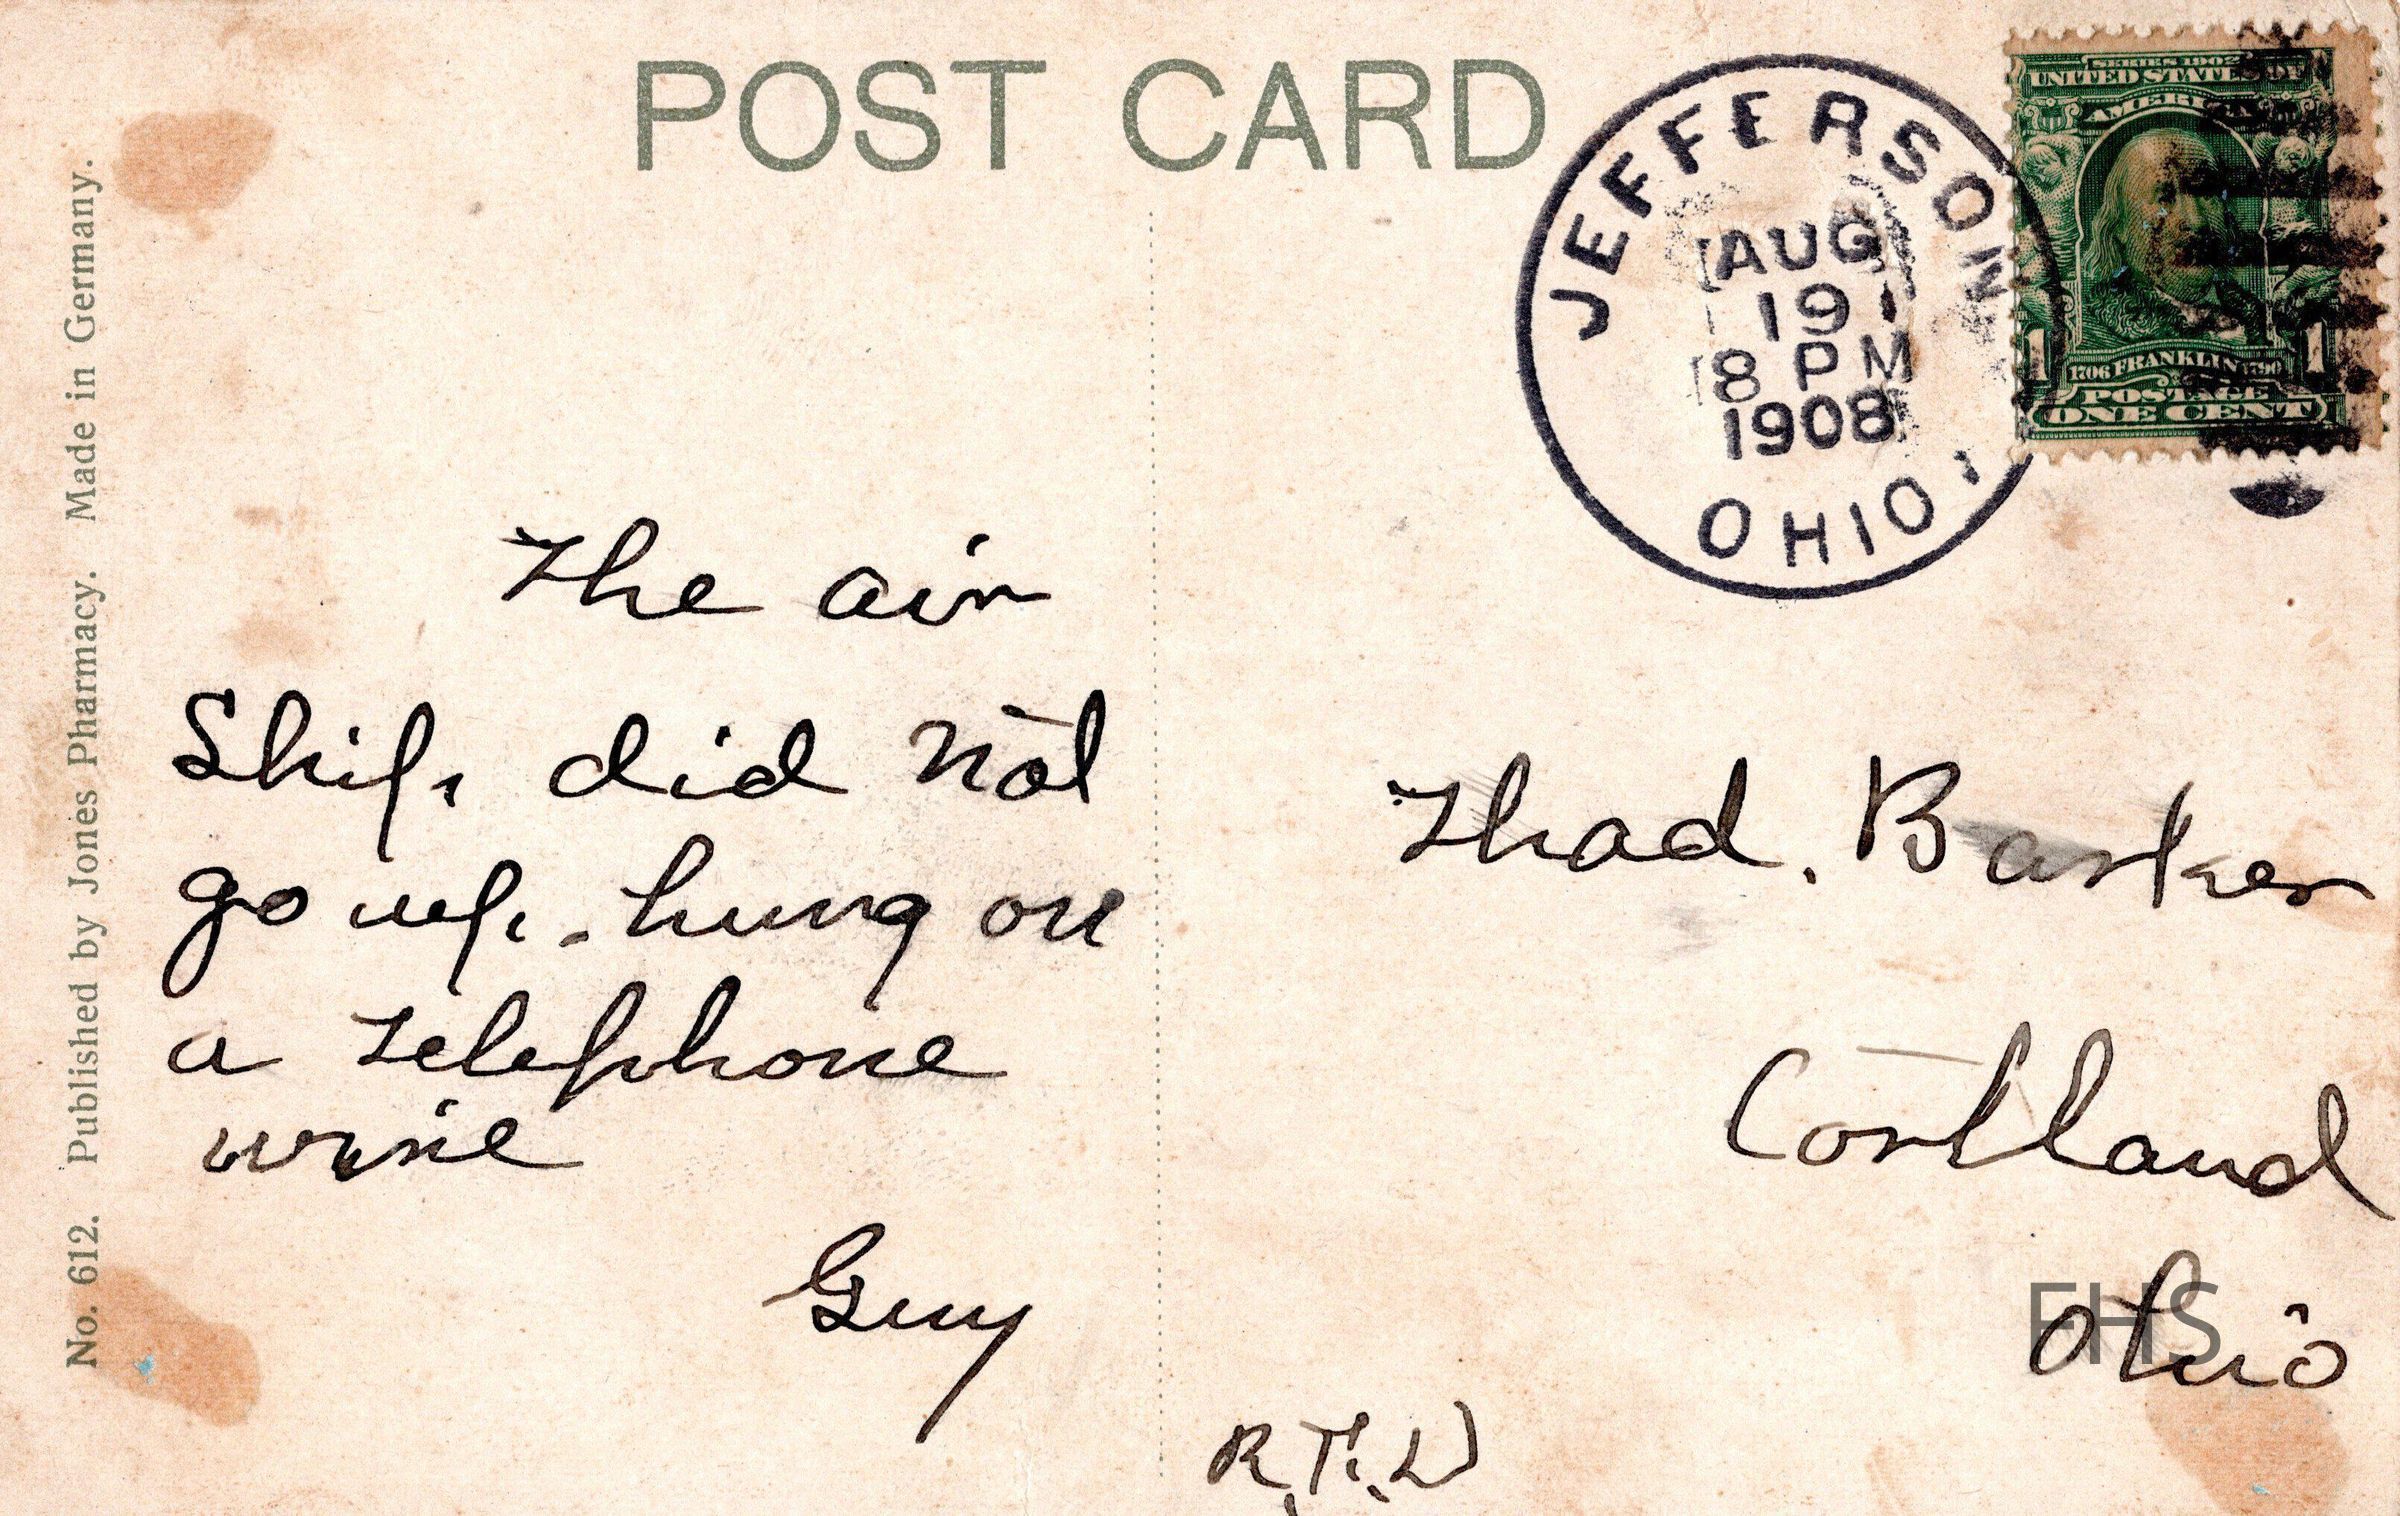 POST CARD
JEFFERSON
AUG
19
8 PM
1908
OHIO.
SERIES 1902
UNITED STATES OF
AMERICA
1 1
1706 FRANKLIN 1790
POSTAGE
ONE CENT
No. 612. Published by Jones Pharmacy. Made in Germany.
The air
Ship did not
go up - hung on
a telephone
wire
Guy
Thad. Barker
Cortland
Ohio
R.F.D
FHS